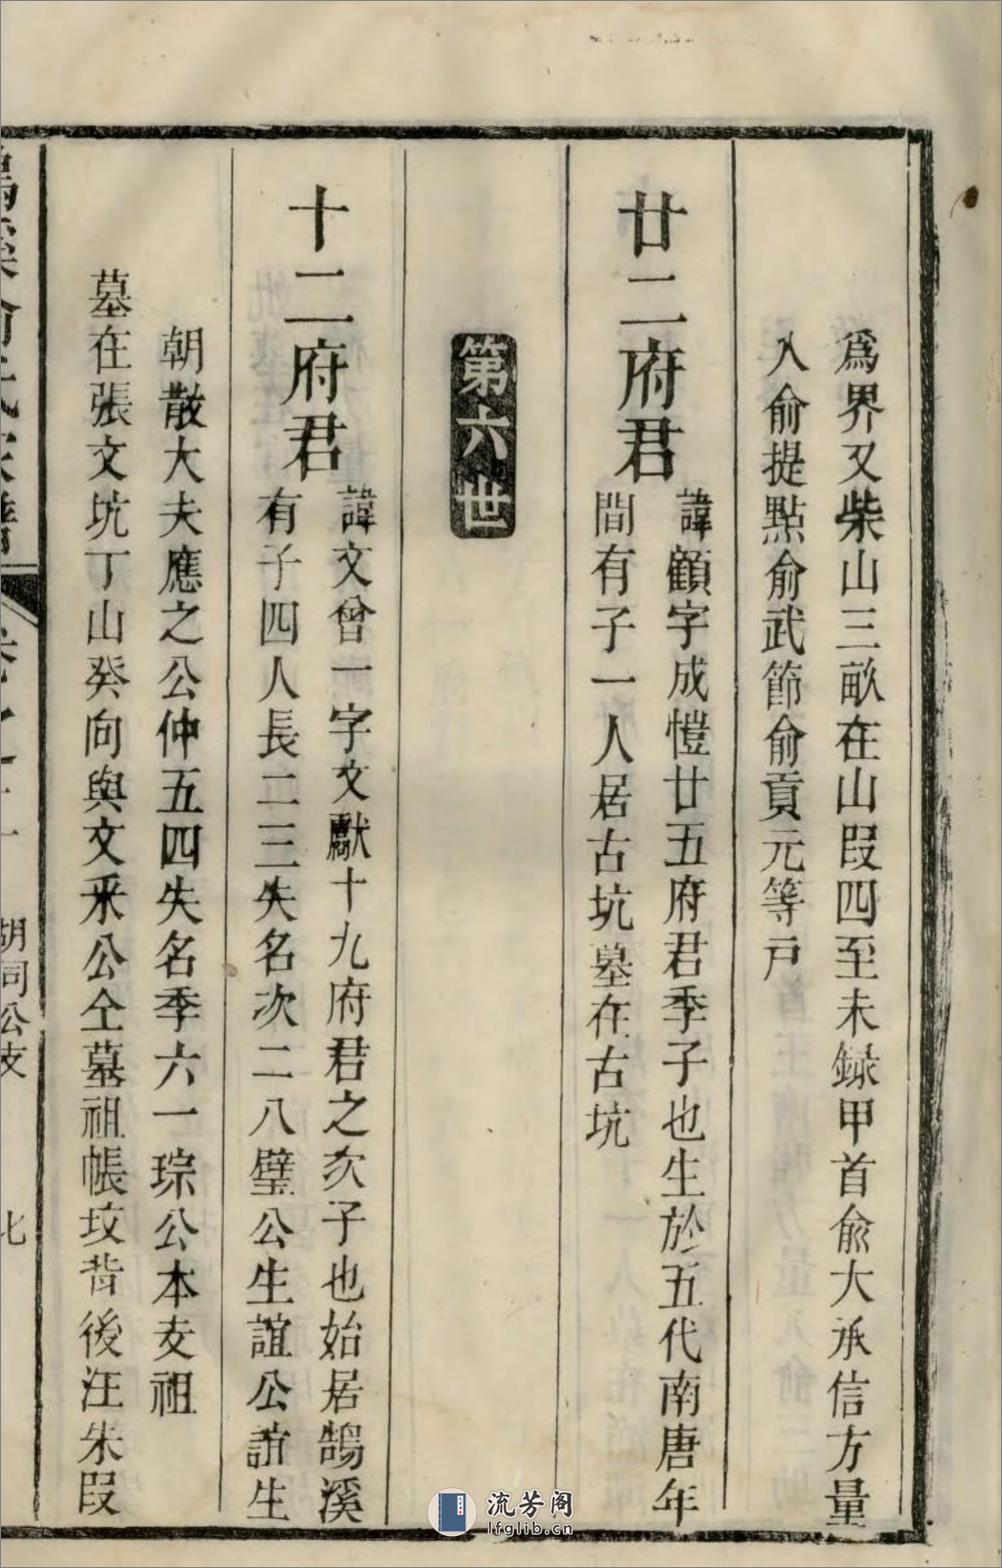 為界又柴山三畝在山段四至未録甲首俞大承信方量
入俞提點俞武節俞貢元等戸
廿二府君
諱顧字成愷廿五府君季子也生於五代南唐年
間有子一人居古坑墓在古坑
第六世
十二府君
諱文曾一字文獻十九府君之次子也始居鵠溪
有子四人長二三失名次二八璧公生誼公誼生
朝散大夫應之公仲五四失名季六一琮公本支祖
墓在張文坑丁山癸向與文采公仝墓祖帳坟背後汪朱段
胡同公支
北
流芳阁
lfglib.cn